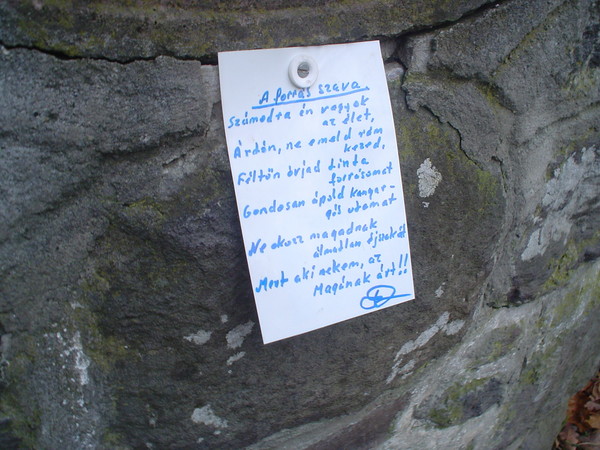 A forrás szava
Számodra én vagyok
az élet,
Ártón, ne emeld rám
kezed,
Féltőn óvjad tiszta
forrásomat
Gondosan ápold kanyar-
gós utamat
Ne okozz magadnak
álmatlan éjszakát
Mert aki nekem, az
Magának árt!!